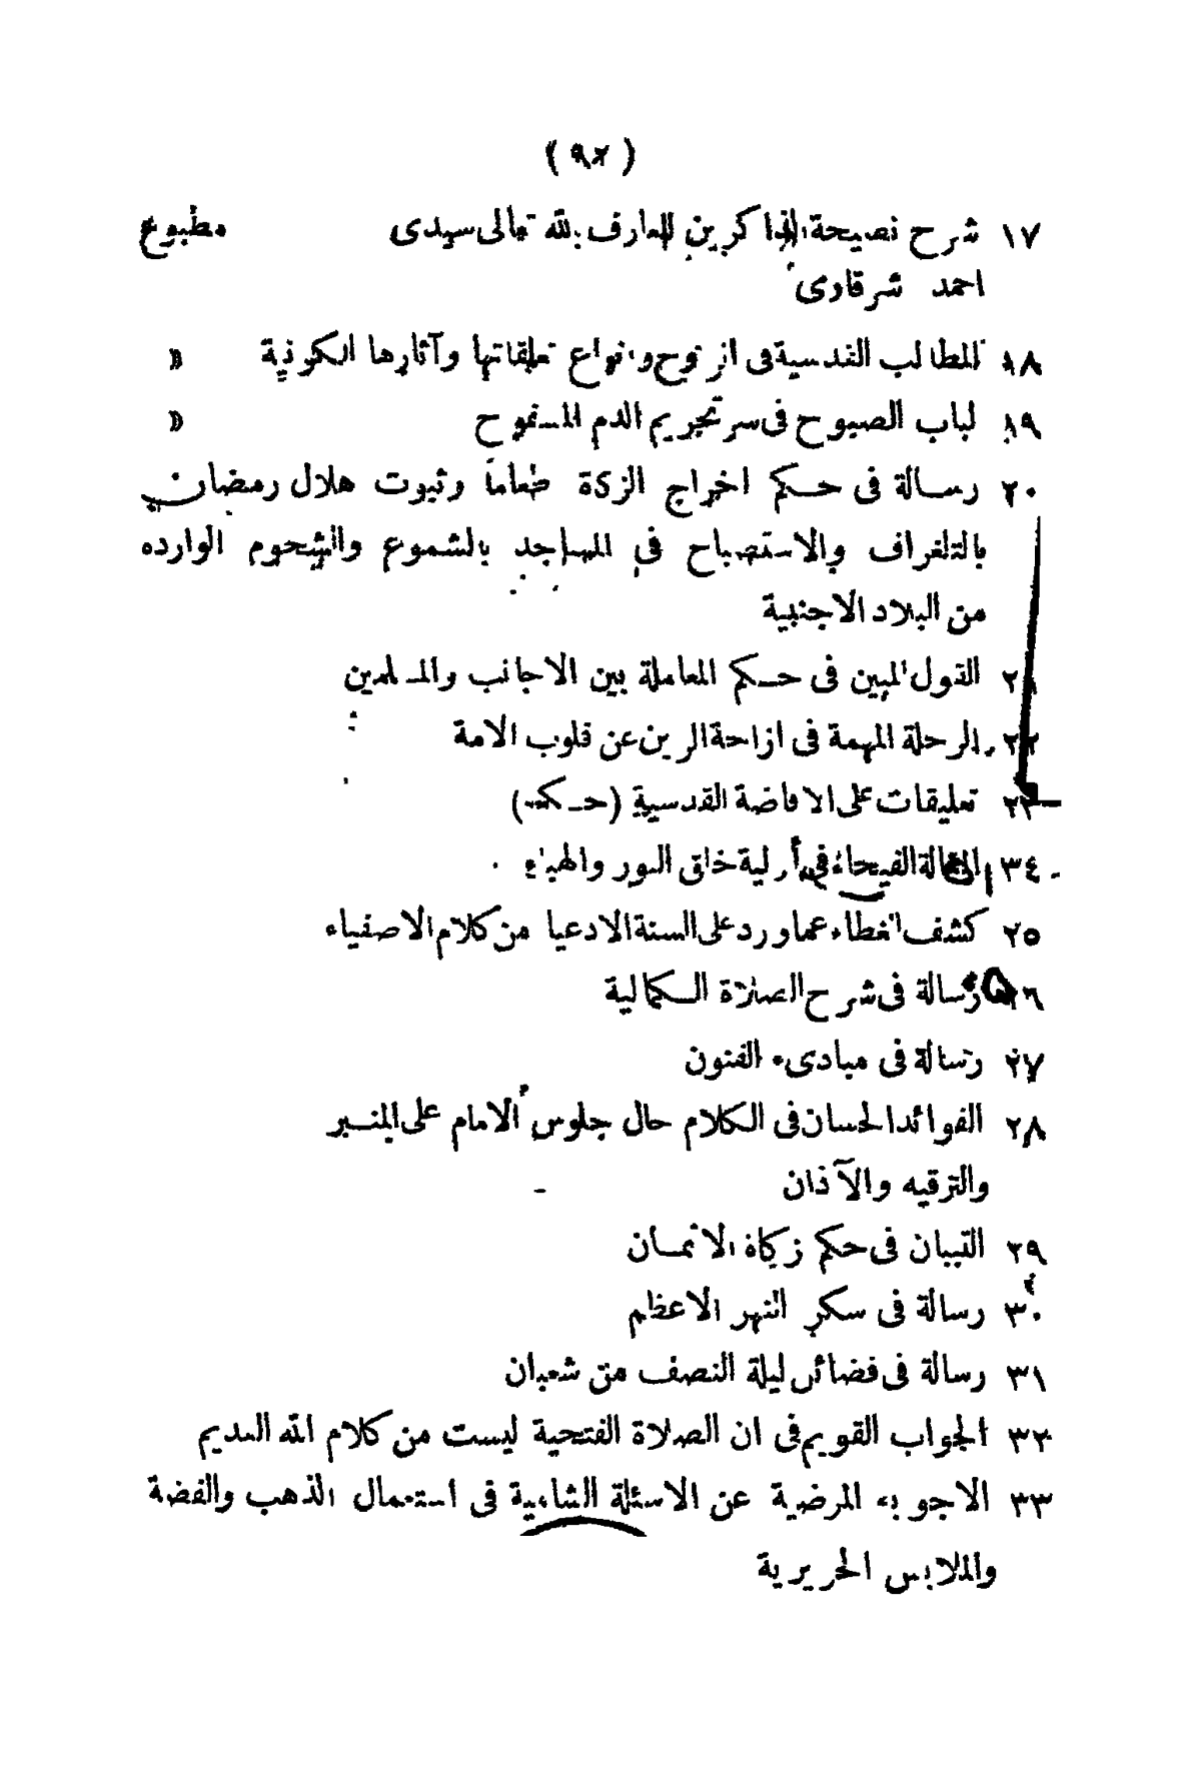 ( ٩٢ )
١٧ شرح نصيحة الذاكرين للعارف بالله تعالى سيدى مطبوع
احمد شرقاوى
١٨ المطالب القدسية فى الروح وانواع تعلقاتها وآثارها الكونية »
١٩ لباب الصبوح فى سر تحريم الدم المسفوح »
٢٠ رسالة فى حكم اخراج الزكاة طعاماً وثبوت هلال رمضان
بالتلغراف والاستصباح فى المساجد بالشموع والشحوم الوارده
من البلاد الاجنبية
٢١ القول المبين فى حكم المعاملة بين الاجانب والمسلمين
٢٢ الرحلة المهمة فى ازاحة الرين عن قلوب الامة
٢٣ تعليقات على الافاضة القدسية (حكمة)
٣٤ المقالة الفيحاء فى أولية خلق النور والهباء
٢٥ كشف الغطاء عما ورد على السنة الادعيا من كلام الاصفياء
٢٦ رسالة فى شرح الصلاة الكمالية
٢٧ رسالة فى مبادىء الفنون
٢٨ الفوائد الحسان فى الكلام حال جلوس الامام على المنبر
والترقيه والآذان
٢٩ التبيان فى حكم زكاة الاثمان
٣٠ رسالة فى سكر النهر الاعظم
٣١ رسالة فى فضائل ليلة النصف من شعبان
٣٢ الجواب القويم فى ان الصلاة الفتحية ليست من كلام الله القديم
٣٣ الاجوبة المرضية عن الاسئلة الشامية فى استعمال الذهب والفضة
والملابس الحريرية